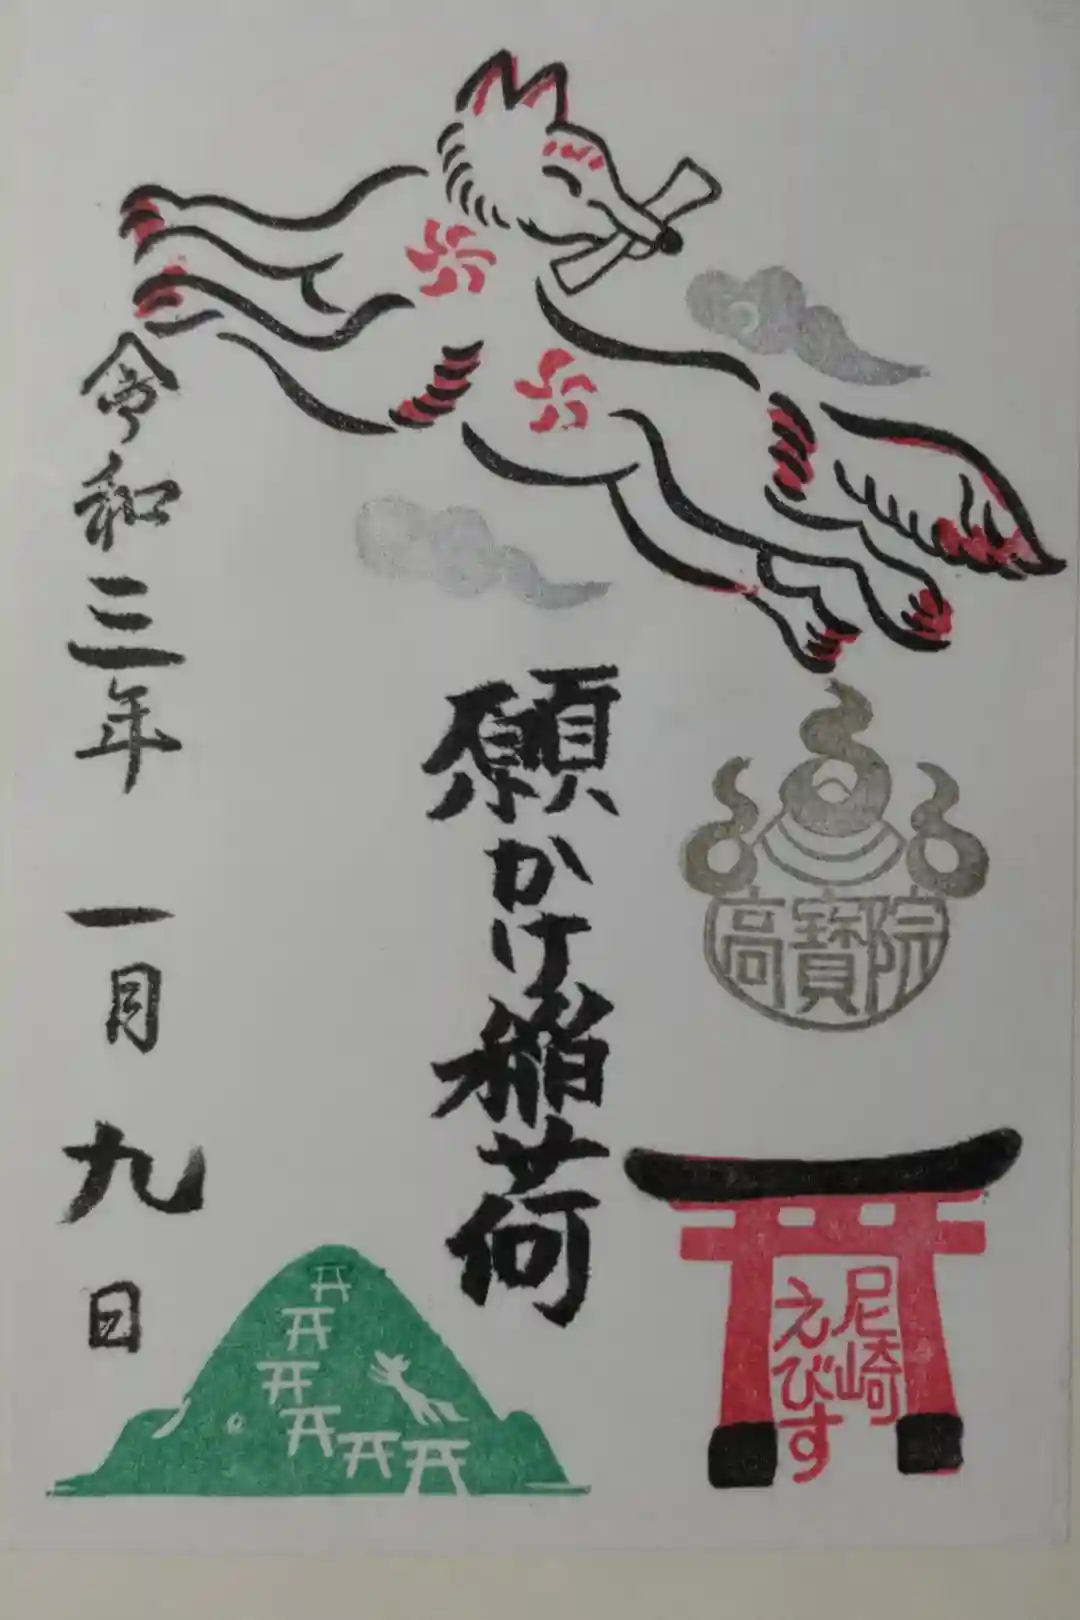 高寳院
尼崎
えびす
願かけ稲荷
令和三年一月九日